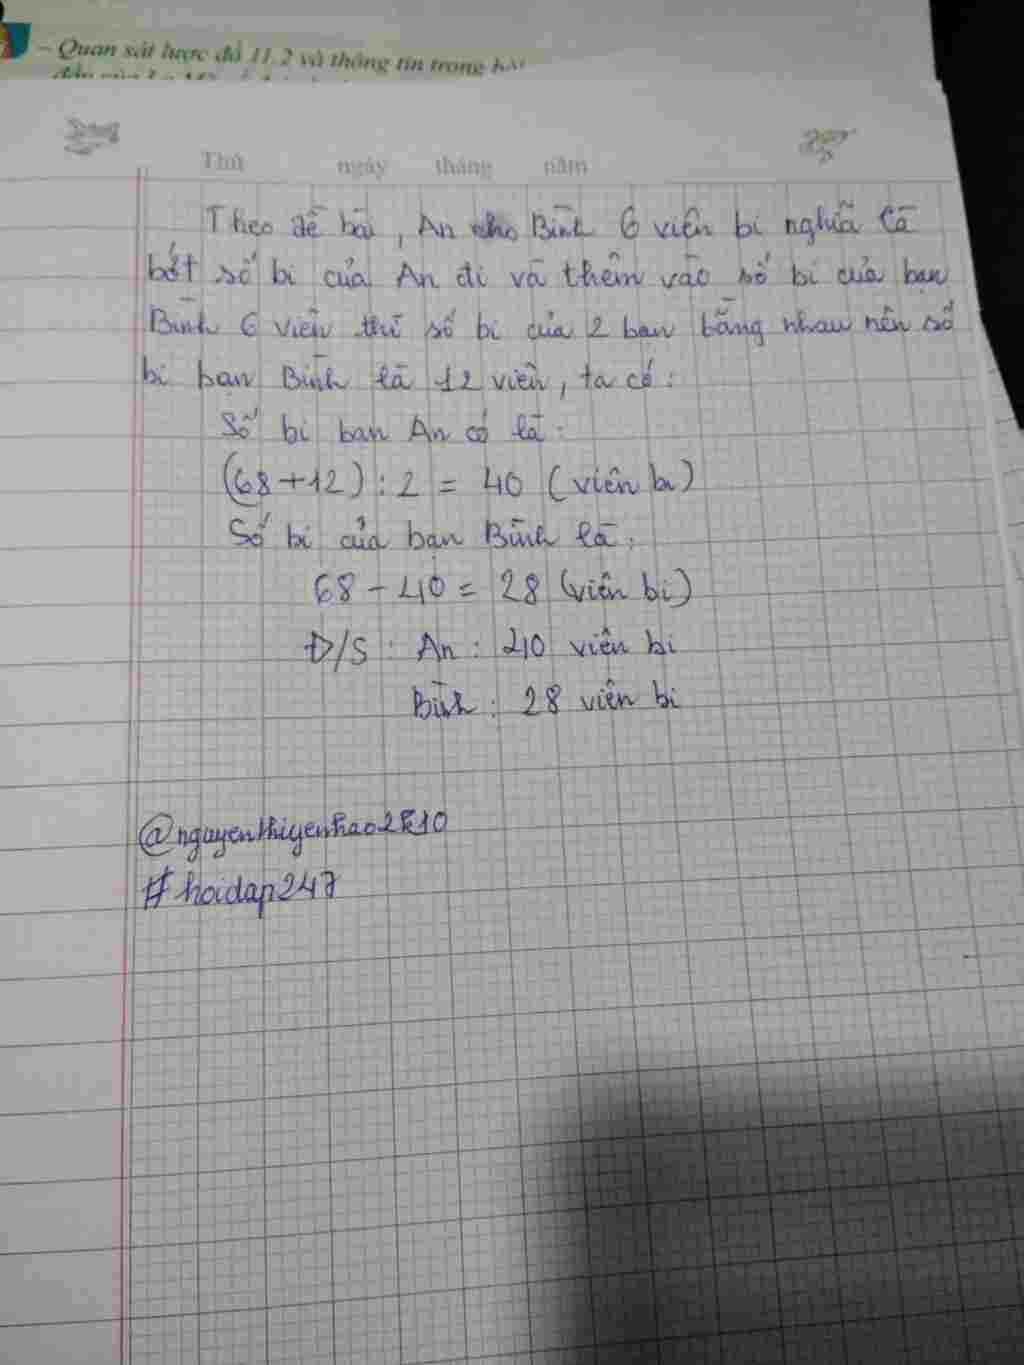 - Quan sát lược đồ 11.2 và thông tin trong bài
Thứ ngày tháng năm
Theo đề bài, An cho Bình 6 viên bi nghĩa là
bớt số bi của An đi và thêm vào số bi của bạn
Bình 6 viên thì số bi của 2 bạn bằng nhau nên số
bi bạn Bình là 12 viên, ta có:
Số bi bạn An có là:
(68+12):2 = 40 (viên bi)
Số bi của bạn Bình là:
68 - 40 = 28 (viên bi)
Đ/S: An: 40 viên bi
Bình: 28 viên bi
@nguyenthiyenhao2k10
#hoidap247